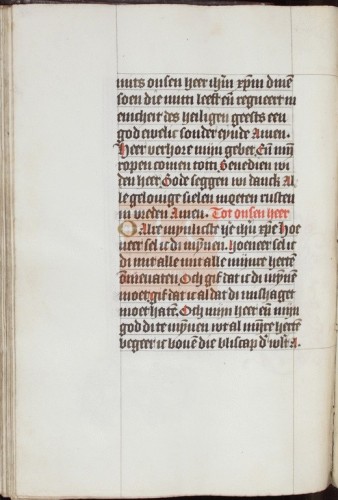 mits onsen heer ihm xpm dinē
soen die mitti leeft eñ regneert in
enicheit des heiligen geests een
god ewelic sonder eynde Amen.
Heer verhore mijn gebet Eñ mijn
ropen comen toti Benedien wi
den heer Gode seggen wi danck Al
le gelovige sielen moeten rusten
in vreden Amen. Tot onsen heer
O Alre mynlicste he ihū xpē Hoe
neer sel ic di mȳnen. hoeneer sel ic
di mit alle mit alle mijnre hertē
ōmevaten Och gif dat ic di mȳnen
moet gif dat ic al dat di mishaget
moet hatē. Och mijn heer eñ mijn
god di te mȳnen wt al mijnre hertē
begeer ic boven die bliscap d' w'lt A.